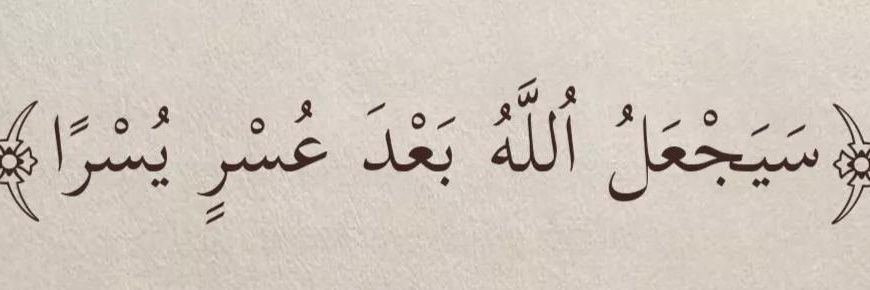 ﴿سَيَجْعَلُ اُللَّهُ بَعْدَ عُسْرٍ يُسْرًا﴾